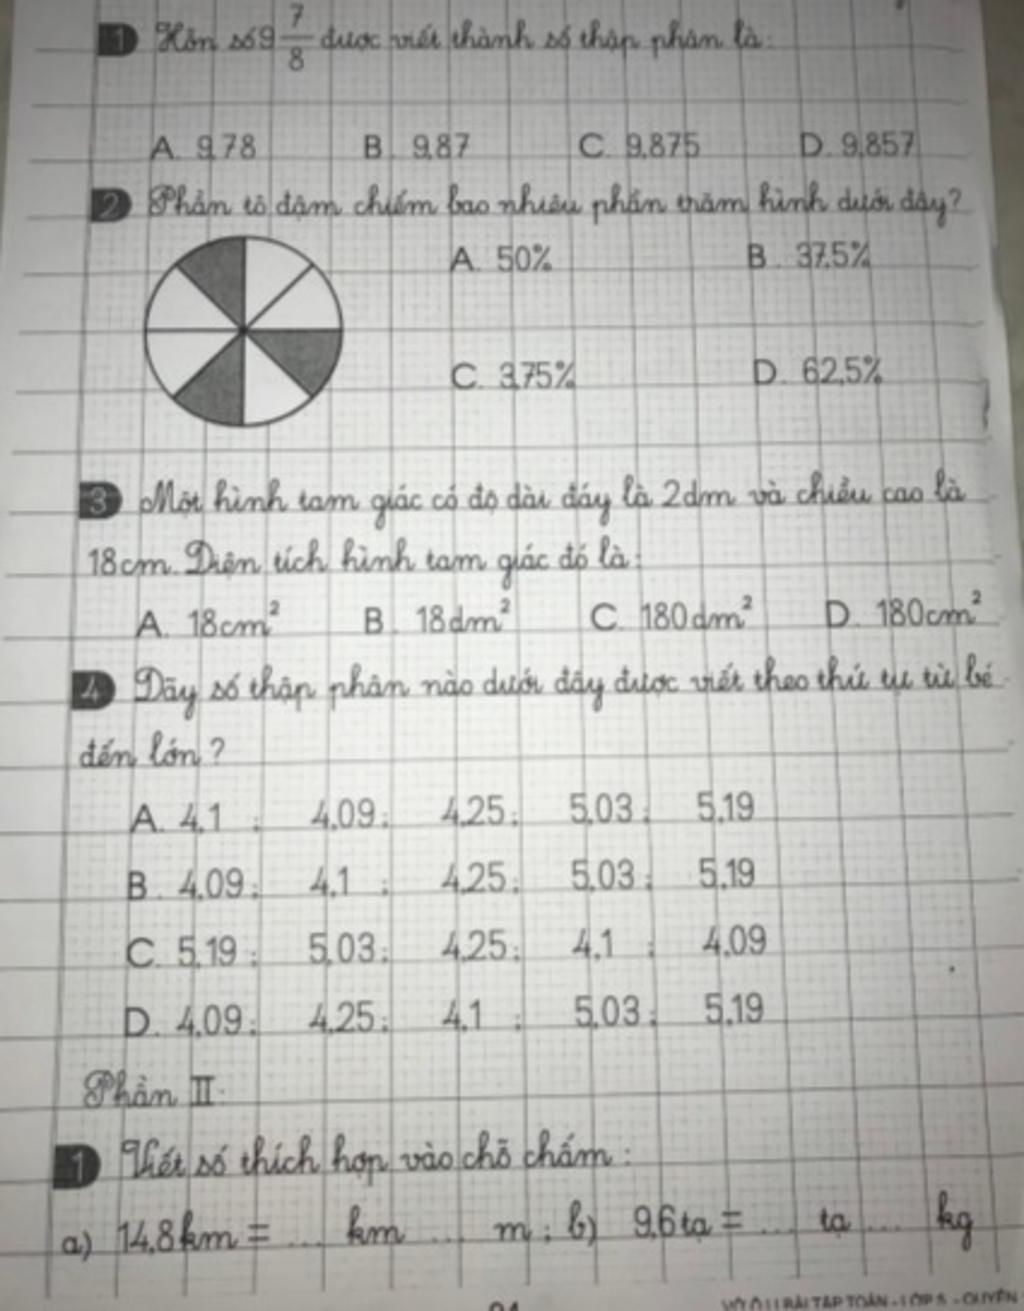 1 Hỗn số 9 7/8 được viết thành số thập phân là:
A. 9,78 B. 9,87 C. 9,875 D. 9,857
2 Phần tô đậm chiếm bao nhiêu phần trăm hình dưới đây?
A. 50% B. 37,5%
C. 3,75% D. 62,5%
3 Một hình tam giác có độ dài đáy là 2dm và chiều cao là
18cm. Diện tích hình tam giác đó là:
A. 18cm² B. 18dm² C. 180dm² D. 180cm²
4 Dãy số thập phân nào dưới đây được viết theo thứ tự từ bé
đến lớn?
A. 4,1 ; 4,09; 4,25; 5,03; 5,19
B. 4,09; 4,1 ; 4,25; 5,03; 5,19
C. 5,19; 5,03; 4,25; 4,1 ; 4,09
D. 4,09; 4,25; 4,1 ; 5,03; 5,19
Phần II.
1 Viết số thích hợp vào chỗ chấm:
a) 14,8km = ... km ... m; b) 9,6tạ = ... tạ ... kg
VỞ Ô LI BÀI TẬP TOÁN - LỚP 5 - QUYỂN